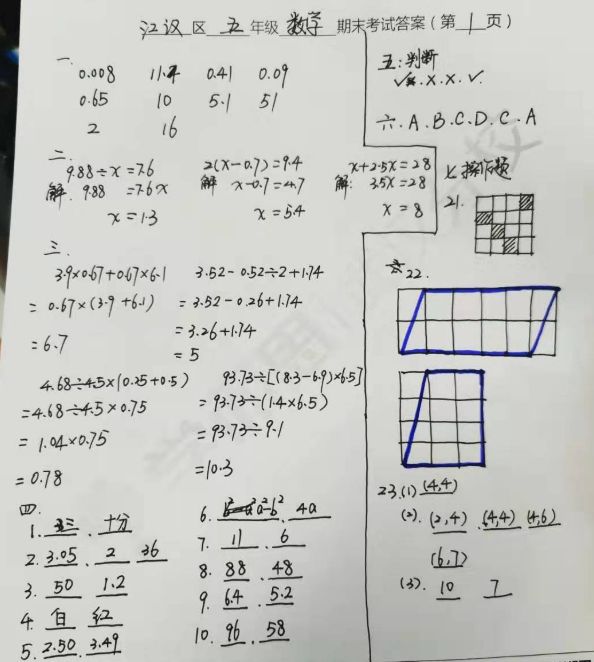 江汉区 五年级 数学 期末考试答案(第 1 页)
一.
0.008 11.4 0.41 0.09
0.65 10 5.1 51
2 16
二.
9.88÷x=7.6 2(x-0.7)=9.4 x+2.5x=28
解: 9.88 =7.6x 解 x-0.7=4.7 解: 3.5x=28
x=1.3 x=5.4 x=8
三.
3.9×0.67+0.67×6.1 3.52-0.52÷2+1.74
=0.67×(3.9+6.1) =3.52-0.26+1.74
=6.7 =3.26+1.74
=5
4.68÷4.5×(0.25+0.5) 93.73÷[(8.3-6.9)×6.5]
=4.68÷4.5×0.75 =93.73÷(1.4×6.5)
=1.04×0.75 =93.73÷9.1
=0.78 =10.3
四.
1. 三 . 十分
2. 3.05 . 2 36
3. 50 1.2
4. 白 红
5. 2.50 . 3.49
6. a²-b² . 4a
7. 11 6
8. 88 . 48
9. 6.4 . 5.2
10. 96 . 58
五:判断
√.×.×.√
六.A.B.C.D.C.A
七.操作题
21.
22.
23.(1) (4,4)
(2). (2,4) . (4,4) (4,6)
(6,7)
(3). 10 7